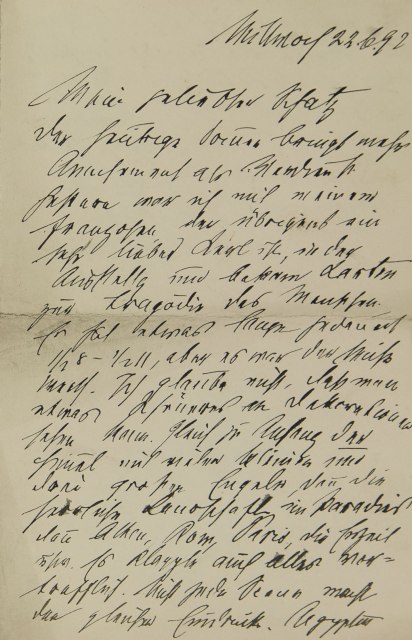 Mittwoch 22.6.92
Mein geliebter Schatz
der heutige bringt mehr
als
gestern war ich mit meinem
Franzosen der übrigens ein
sehr lieber Kerl ist, in der
Ausstellg und bekam Karten
zur Tragödie des Menschen.
Es hat etwas lange gedauert
1/2 8 – 1/2 11, aber es war der Mühe
werth. Ich glaube nicht, daß man
etwas Schöneres an Dekorationen
sehen kann. Gleich zu Anfang der
Himmel mit vielen und
drei großen Engeln, dann die
herrliche Landschaft im Paradies
dann Athen, Rom, Paris, die Eiszeit
usw. Es klappte auch alles vor-
trefflich. Nicht jede Scene macht
den gleichen Eindruck. Ägypten